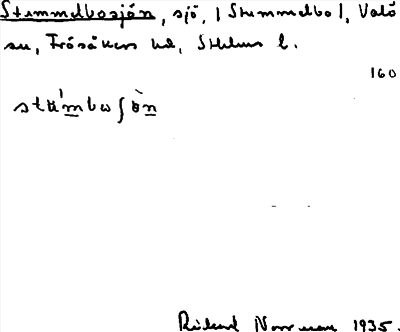 Stummelbosjön, sjö, | Stummelbo |, Valö
sn, Frösåkers hd, Sthlms l.
160
stu̇́mboʃòn
Rickard Norrman 1935.